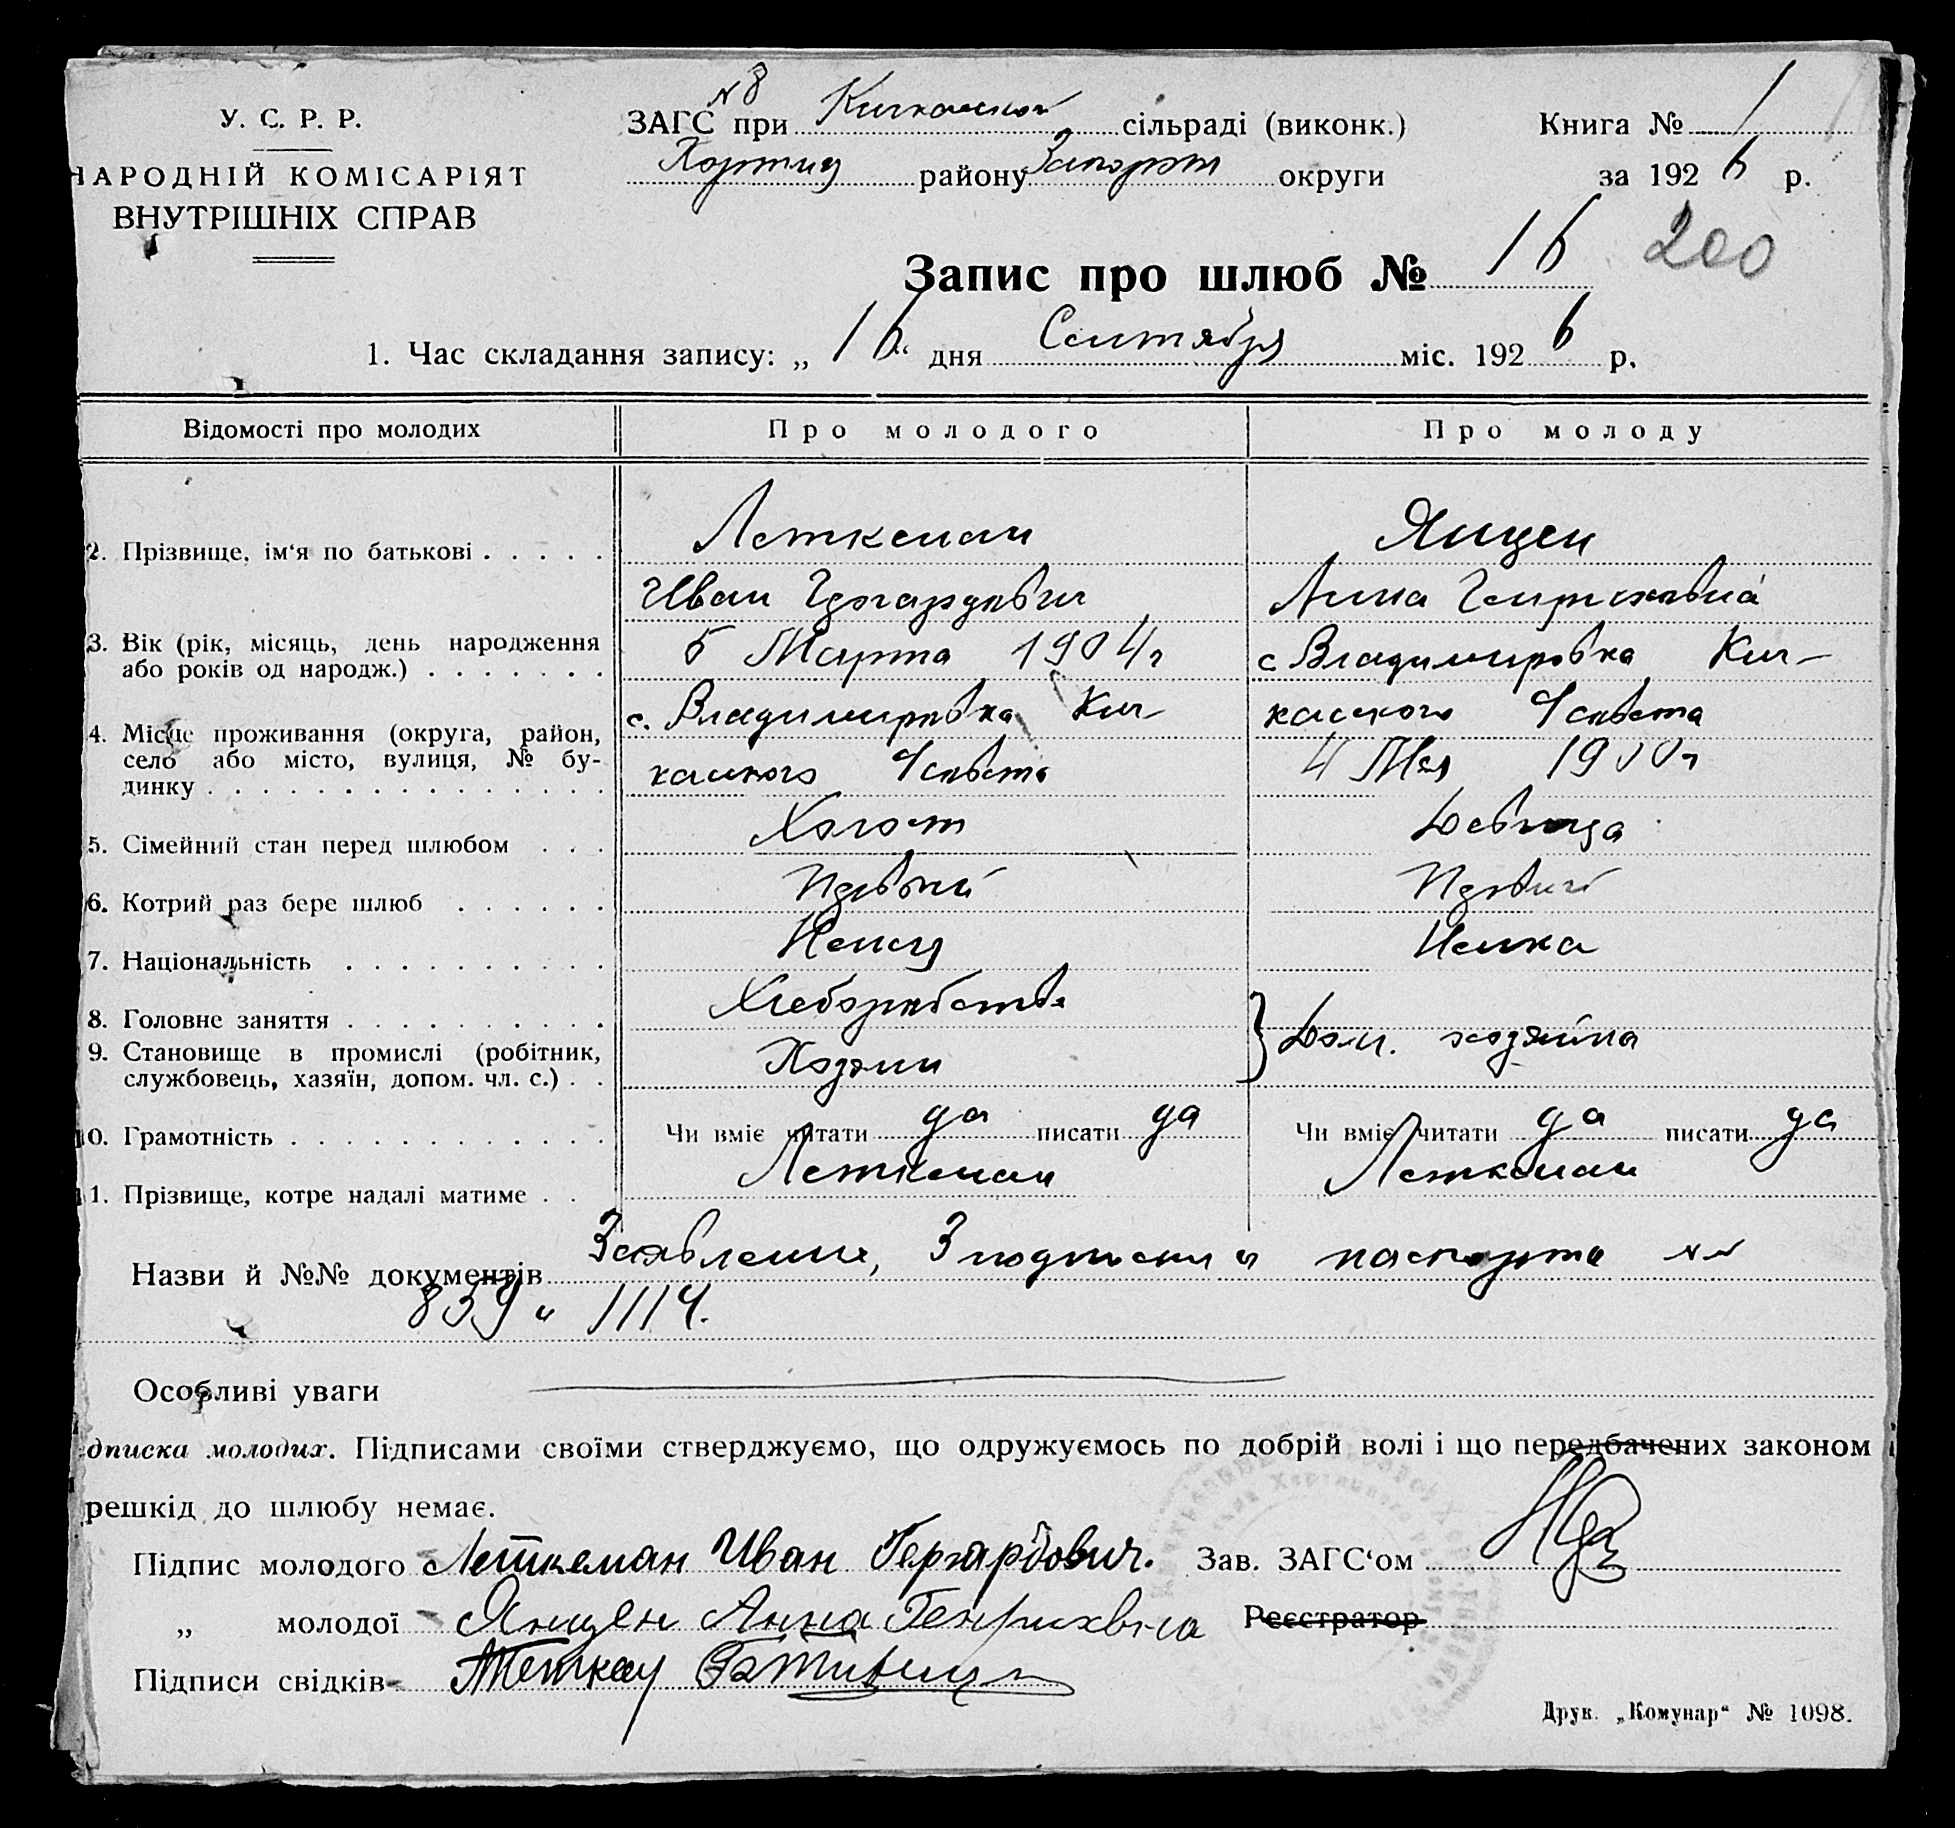 У. С. Р. Р.
НАРОДНІЙ КОМІСАРІЯТ
ВНУТРІШНІХ СПРАВ
№ 8
ЗАГС при Кичкасской сільраді (виконк.)
Хортиц району Запорож округи
Книга № 1
за 1926 р.
Запис про шлюб № 16 200
1. Час складання запису: „ 16 “ дня Сентября міс. 1926 р.
Відомості про молодих Про молодого Про молоду
2. Прізвище, ім‘я по батькові Леткеман Янцен
Иван Гергардович Анна Генриховна
3. Вік (рік, місяць, день народження 5 Марта 1904 г с Владимировка Кич-
або років од народж.)
с. Владимировка Кич- касского Усовета
4. Місце проживання (округа, район,
село або місто, вулиця, № бу-
динку касского Усовета 4 Мая 1900 г
5. Сімейний стан перед шлюбом Холост Девица
6. Котрий раз бере шлюб Первый Первый
7. Національність Немец Немка
8. Головне заняття Хлеборобство Дом. хозяйка
9. Становище в промислі (робітник, Хозяин
службовець, хазяїн, допом. чл. с.)
10. Грамотність Чи вміє читати да писати да Чи вміє читати да писати да
11. Прізвище, котре надалі матиме Леткеман Леткеман
Назви й №№ документів Заявление, 3 подписки и паспорта №№
859 и 1114.
Особливі уваги
дписка молодих. Підписами своїми стверджуємо, що одружуємось по добрій волі і що передбачених законом
решкід до шлюбу немає.
Підпис молодого Леткеман Иван Гергардович. Зав. ЗАГС‘ом
„ молодої Янцен Анна Генриховна Реєстратор
Підписи свідків
Друк. „Комунар“ № 1098.